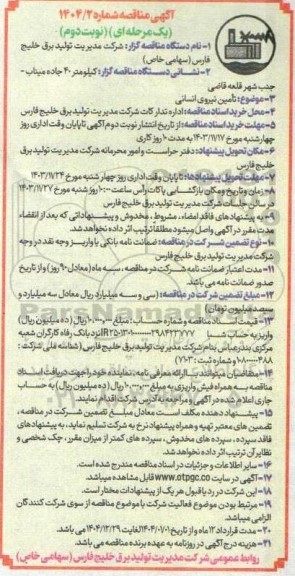 آگهی مناقصه شماره ۱۴۰۴/۲
(یک مرحله ای) (نوبت دوم)
۱- نام دستگاه مناقصه گزار: شرکت مدیریت تولید برق خلیج
فارس (سهامی خاص)
۲- نشانی دستگاه مناقصه گزار: کیلومتر ۴۰ جاده میناب-
جنب شهر قلعه قاضی
۳- موضوع: تأمین نیروی انسانی
۴- محل خرید اسناد مناقصه: اداره تدارکات شرکت مدیریت تولید برق خلیج فارس
۵- مهلت خرید اسناد مناقصه: از تاریخ انتشار نوبت دوم آگهی تا پایان وقت اداری روز
چهارشنبه مورخ ۱۴۰۳/۱۱/۱۷ به مدت ۱۰ روز کاری
۶- مکان تحویل پیشنهاد: دفتر حراست و امور محرمانه شرکت مدیریت تولید برق
خلیج فارس
۷- مهلت تحویل پیشنهادها: تا پایان وقت اداری روز چهارشنبه مورخ ۱۴۰۳/۱۱/۲۴
۸- زمان و تاریخ و مکان بازگشایی پاکات رأس ساعت ۱۰:۰۰ روز شنبه مورخ ۱۴۰۳/۱۱/۲۷
در سالن جلسات شرکت مدیریت تولید برق خلیج فارس
۹- به پیشنهادهای فاقد امضاء، مشروط، مخدوش و پیشنهاداتی که بعد از انقضاء
مدت مقرر در آگهی واصل میشود مطلقا ترتیب اثر داده نخواهد شد.
۱۰- نوع تضمین شرکت در مناقصه: ضمانت نامه بانکی یا واریز وجه نقد در وجه
شرکت مدیریت تولید برق خلیج فارس
۱۱- مدت اعتبار ضمانت نامه شرکت در مناقصه، سه ماه (معادل ۹۰ روز) و از تاریخ
صدور ضمانت نامه می باشد.
۱۲- مبلغ تضمین شرکت در مناقصه: (سی و سه میلیارد ریال معادل سه میلیارد و
سیصد میلیون تومان)
۱۳- قیمت اسناد مناقصه و شماره حساب: مبلغ ۱۰،۰۰۰،۰۰۰ ریال (ده میلیون ریال)
واریز به حساب شبا نزد بانک رفاه کارگران شعبه
مرکزی بندرعباس بنام شرکت مدیریت تولید برق خلیج فارس (شناسه ملی شرکت:
و شماره ثبت: ۷۰۳)
۱۴- متقاضیان میتوانند با ارائه معرفی نامه، نماینده خود را جهت دریافت اسناد
مناقصه به همراه فیش واریزی به مبلغ ۱۰،۰۰۰،۰۰۰ ریال (ده میلیون ریال) به حساب
جاری اعلام شده در آگهی و مراجعه به آدرس شرکت اقدام نمایند.
۱۵- پیشنهاد دهنده مکلف است معادل مبلغ تضمین شرکت در مناقصه،
تضمین های معتبر تهیه و همراه پیشنهاد نرخ به شرکت تسلیم نماید، به پیشنهادهای
فاقد سپرده، سپرده های مخدوش، سپرده های کمتر از میزان مقرر، چک شخصی و
نظایر آن ترتیب اثر داده نخواهد شد.
۱۶- سایر اطلاعات و جزئیات در اسناد مناقصه مندرج شده است.
۱۷- آگهی در سایت www.otpgc.co قابل مشاهده میباشد.
۱۸- این شرکت در رد یا قبول هر یک از پیشنهادات مختار است.
۱۹- مرتبط بودن موضوع فعالیت شرکت با موضوع مناقصه از سوی شرکت کنندگان
الزامی میباشد.
۲۰- مدت قرارداد ۱۲ ماه و از تاریخ ۱۴۰۴/۰۱/۰۱ لغایت ۱۴۰۴/۱۲/۲۹ می باشد.
۲۱- هزینه درج آگهی در روزنامه به عهده برنده مناقصه می باشد.
روابط عمومی شرکت مدیریت تولید برق خلیج فارس (سهامی خاص)